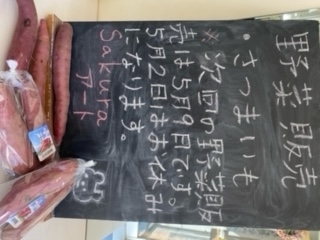 野菜販売
・さつまいも
※次回の野菜販
売は5月9日です。
5月2日はお休み
になります。
Sakura
アート